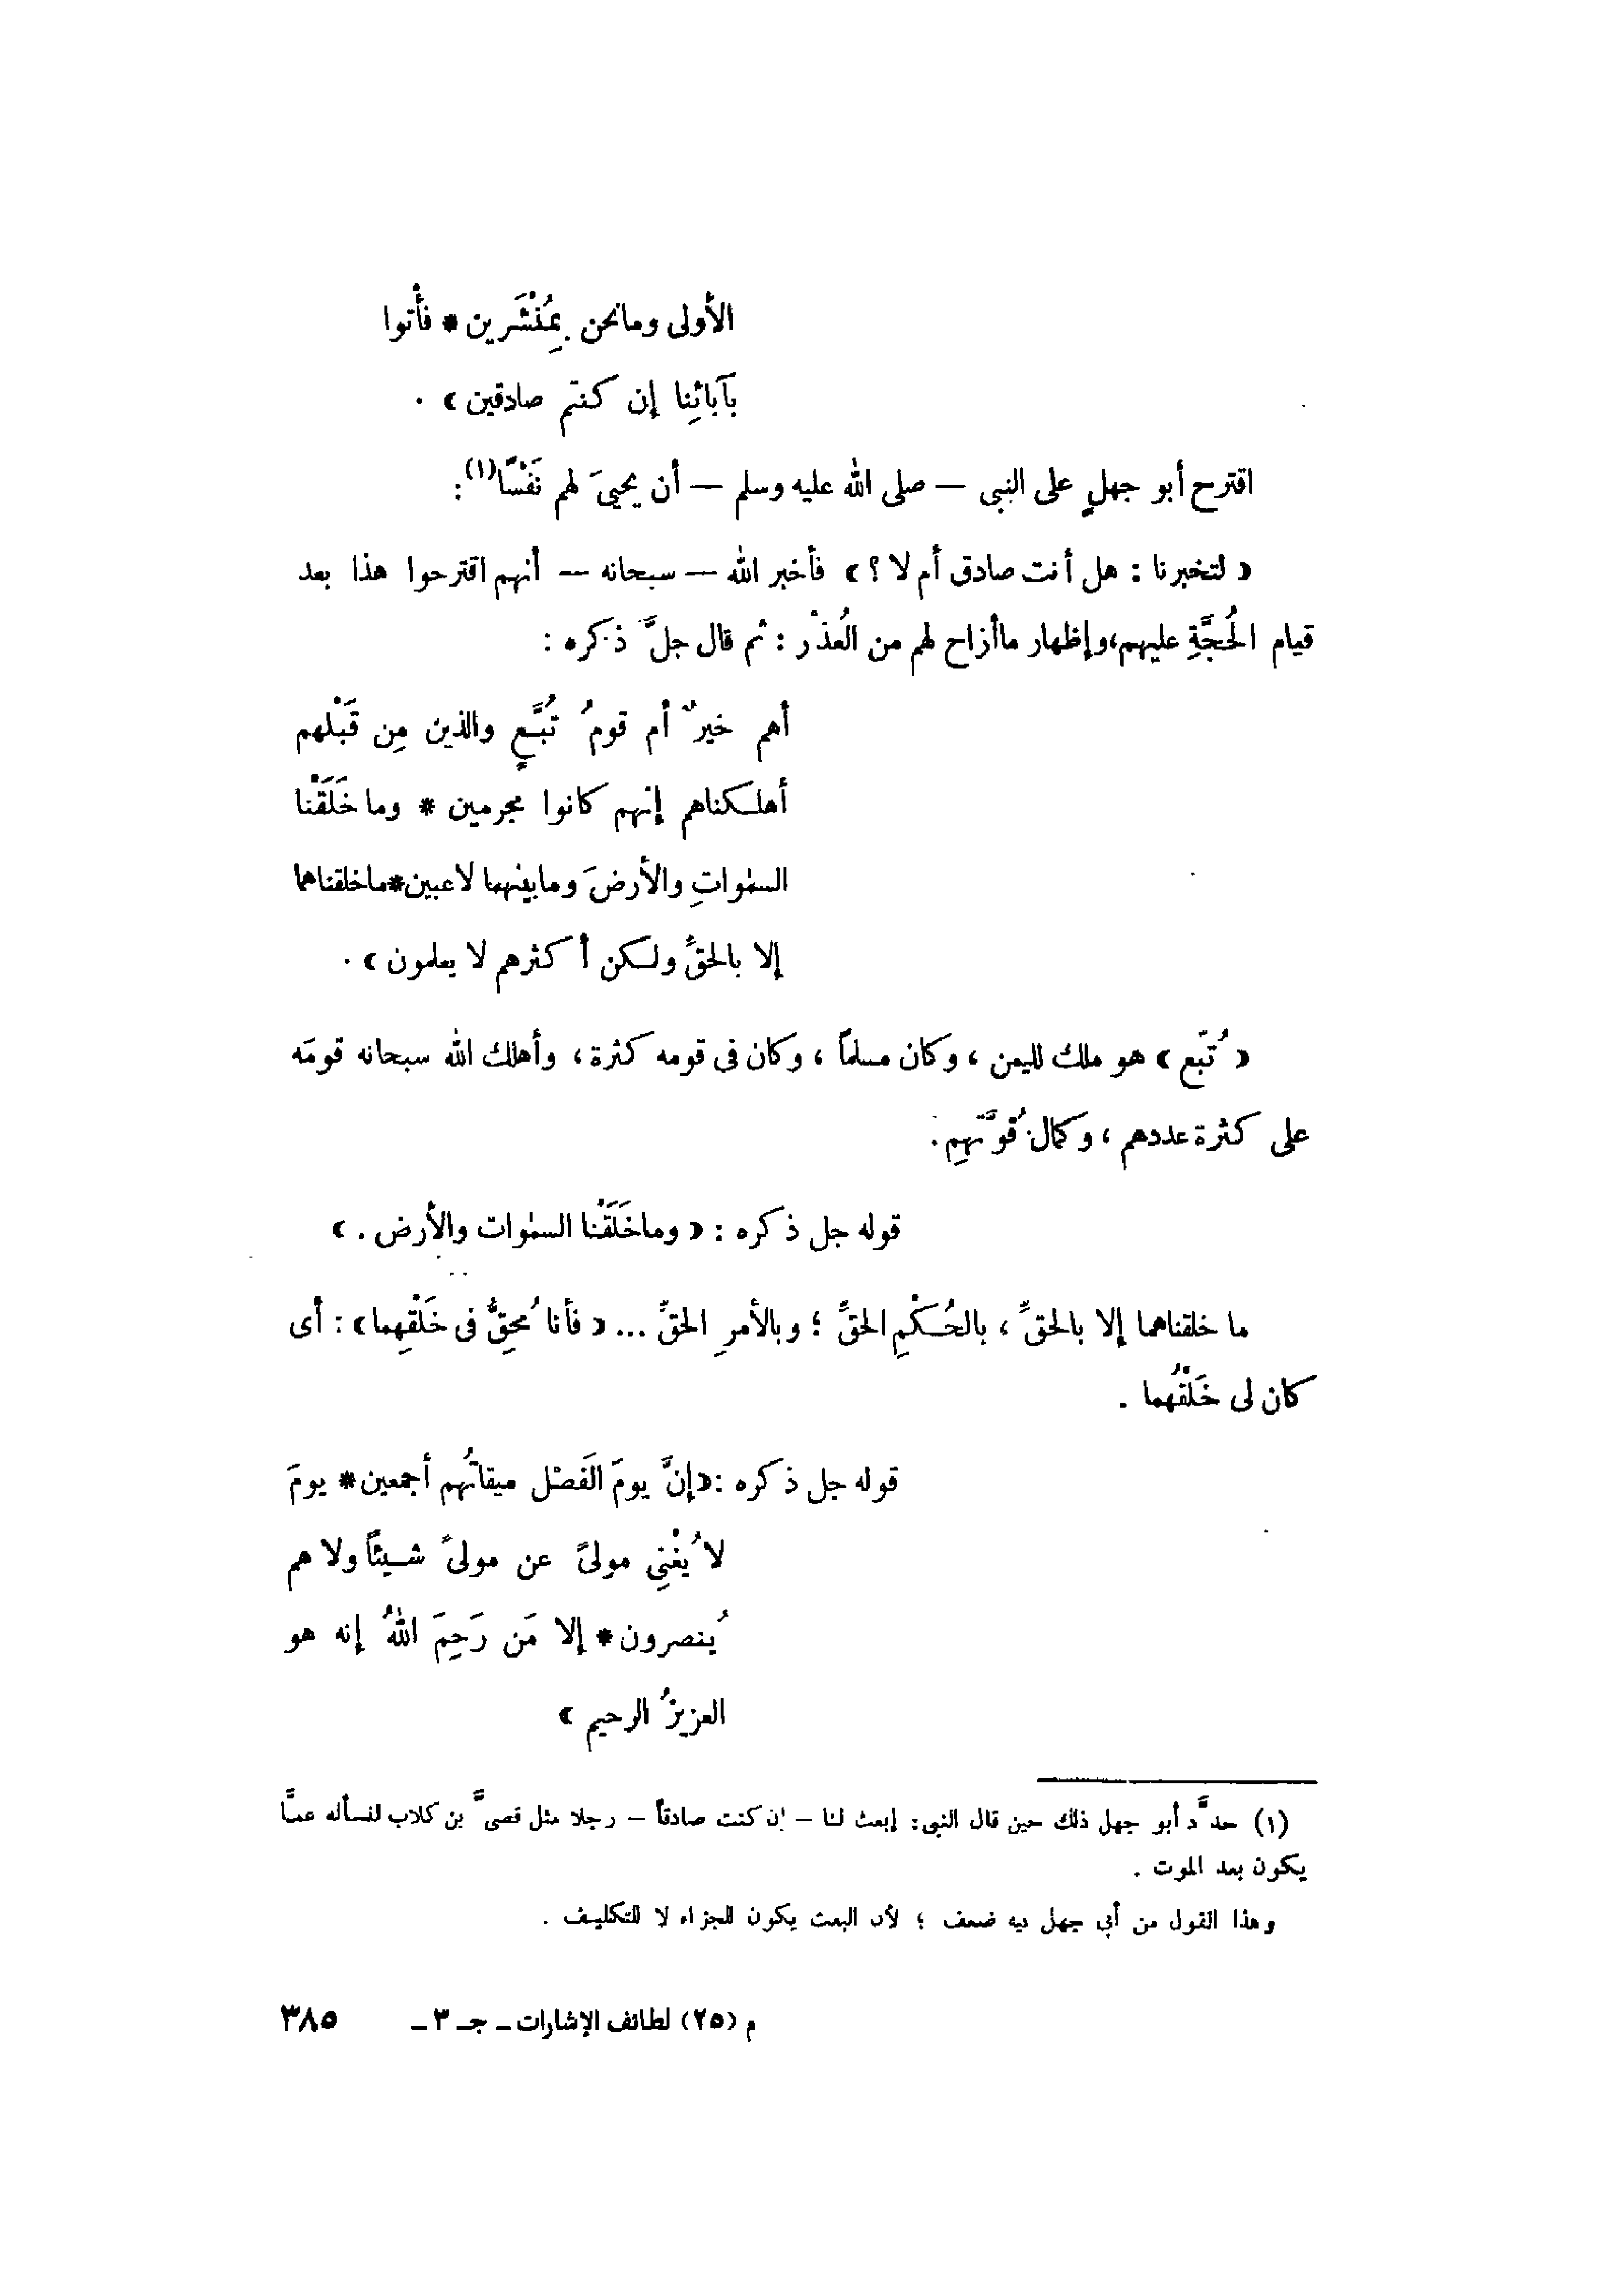 الأولى وما نحن بِمُنْشَرين * فأْتوا
بآبائِنا إن كنتم صادقين » .
اقترح أبو جهلٍ على النبى — صلى الله عليه وسلم — أن يحيىَ لهم نَفْسًا(١) :
« لتخبرنا : هل أنت صادق أم لا ؟ » فأخبر الله — سبحانه — أنهم اقترحوا هذا بعد
قيام الحُجَّةِ عليهم، وإظهار ما أزاح لهم من العُذْر : ثم قال جلَّ ذكره :
أهم خيرٌ أم قومُ تُبَّعٍ والذين مِن قَبْلهم
أهلـكناهم إنهم كانوا مجرمين * وما خَلَقْنا
السمٰواتِ والأرضَ وما بينهما لاعبين * ما خلقناهما
إلا بالحقِّ ولـكن أكثرهم لا يعلمون » .
« تُبّع » هو ملك لليمن ، وكان مسلماً ، وكان فى قومه كثرة ، وأهلك الله سبحانه قومَه
على كثرة عددهم ، وكمال قُوَّتهِم .
قوله جل ذكره : « وما خَلَقْنا السمٰوات والأرض . »
ما خلقناهما إلا بالحقِّ ، بالحُـكْمِ الحقِّ ؛ وبالأمرِ الحقِّ ... « فأنا مُحِقٌّ فى خَلْقِهما » : أى
كان لى خَلْقُهما .
قوله جل ذكره : « إنَّ يومَ الفَصْل ميقاتُهم أجمعين * يومَ
لا يُغْنِى مولىً عن مولىً شـيئاً ولا هم
يُنصرون * إلا مَن رَحِمَ اللهُ إنه هو
العزيزُ الرحيم »
(١) حدَّد أبو جهل ذلك حين قال النبى : إبعث لنا – إن كنت صادقاً – رجلا مثل قصىَّ بن كلاب لنسأله عمَّا
يكون بعد الموت .
وهذا القول من أبى جهل فيه ضعف ؛ لأن البعث يكون للجزاء لا للتكليف .
م (٢٥) لطائف الإشارات ـ جـ ٣ ـ ٣٨٥